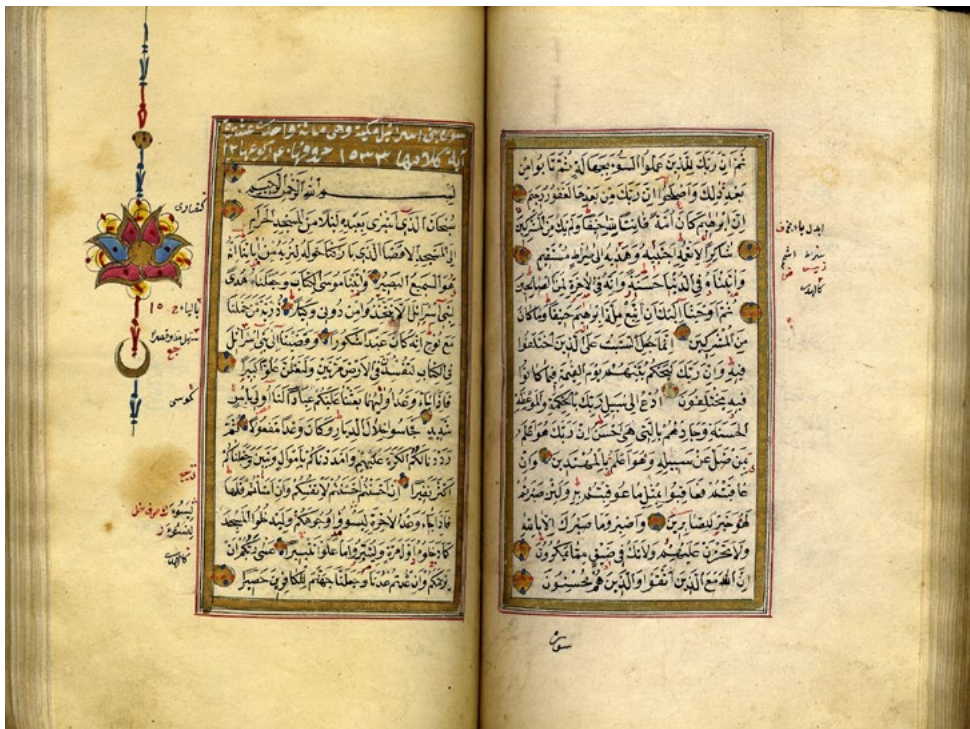 ثم ان ربك للذين عملوا السوء بجهالة ثم تابوا من
بعد ذلك واصلحوا ان ربك من بعدها لغفور رحيم
ان ابرهيم كان امة قانتا لله حنيفا ولم يك من المشركين
شاكرا لانعمه اجتبيه وهديه الى صراط مستقيم
واتيناه في الدنيا حسنة وانه في الاخرة لمن الصالحين
ثم اوحينا اليك ان اتبع ملة ابرهيم حنيفا وما كان
من المشركين انما جعل السبت على الذين اختلفوا
فيه وان ربك ليحكم بينهم يوم القيمة فيما كانوا
فيه يختلفون ادع الى سبيل ربك بالحكمة والموعظة
الحسنة وجادلهم بالتي هي احسن ان ربك هو اعلم
بمن ضل عن سبيله وهو اعلم بالمهتدين وان
عاقبتم فعاقبوا بمثل ما عوقبتم به ولئن صبرتم
لهو خير للصابرين واصبر وما صبرك الا بالله
ولا تحزن عليهم ولا تك في ضيق مما يمكرون
ان الله مع الذين اتقوا والذين هم محسنون
سورة بني اسرائيل مكية وهي مائة واحدى عشرة
اية كلامها ١٥٣٣ حروفها
بسم الله الرحمن الرحيم
سبحان الذي اسرى بعبده ليلا من المسجد الحرام
الى المسجد الاقصا الذي باركنا حوله لنريه من اياتنا انه
هو السميع البصير واتينا موسى الكتاب وجعلناه هدى
لبني اسرائيل الا تتخذوا من دوني وكيلا ذرية من حملنا
مع نوح انه كان عبدا شكورا وقضينا الى بني اسرائيل
في الكتاب لتفسدن في الارض مرتين ولتعلن علوا كبيرا
فاذا جاء وعد اوليهما بعثنا عليكم عبادا لنا اولي باس
شديد فجاسوا خلال الديار وكان وعدا مفعولا ثم
رددنا لكم الكرة عليهم وامددناكم باموال وبنين وجعلناكم
اكثر نفيرا ان احسنتم احسنتم لانفسكم وان اساتم فلها
فاذا جاء وعد الاخرة ليسوؤا وجوهكم وليدخلوا المسجد
كما دخلوه اول مرة وليتبروا ما علوا تتبيرا عسى ربكم ان
يرحمكم وان عدتم عدنا وجعلنا جهنم للكافرين حصيرا